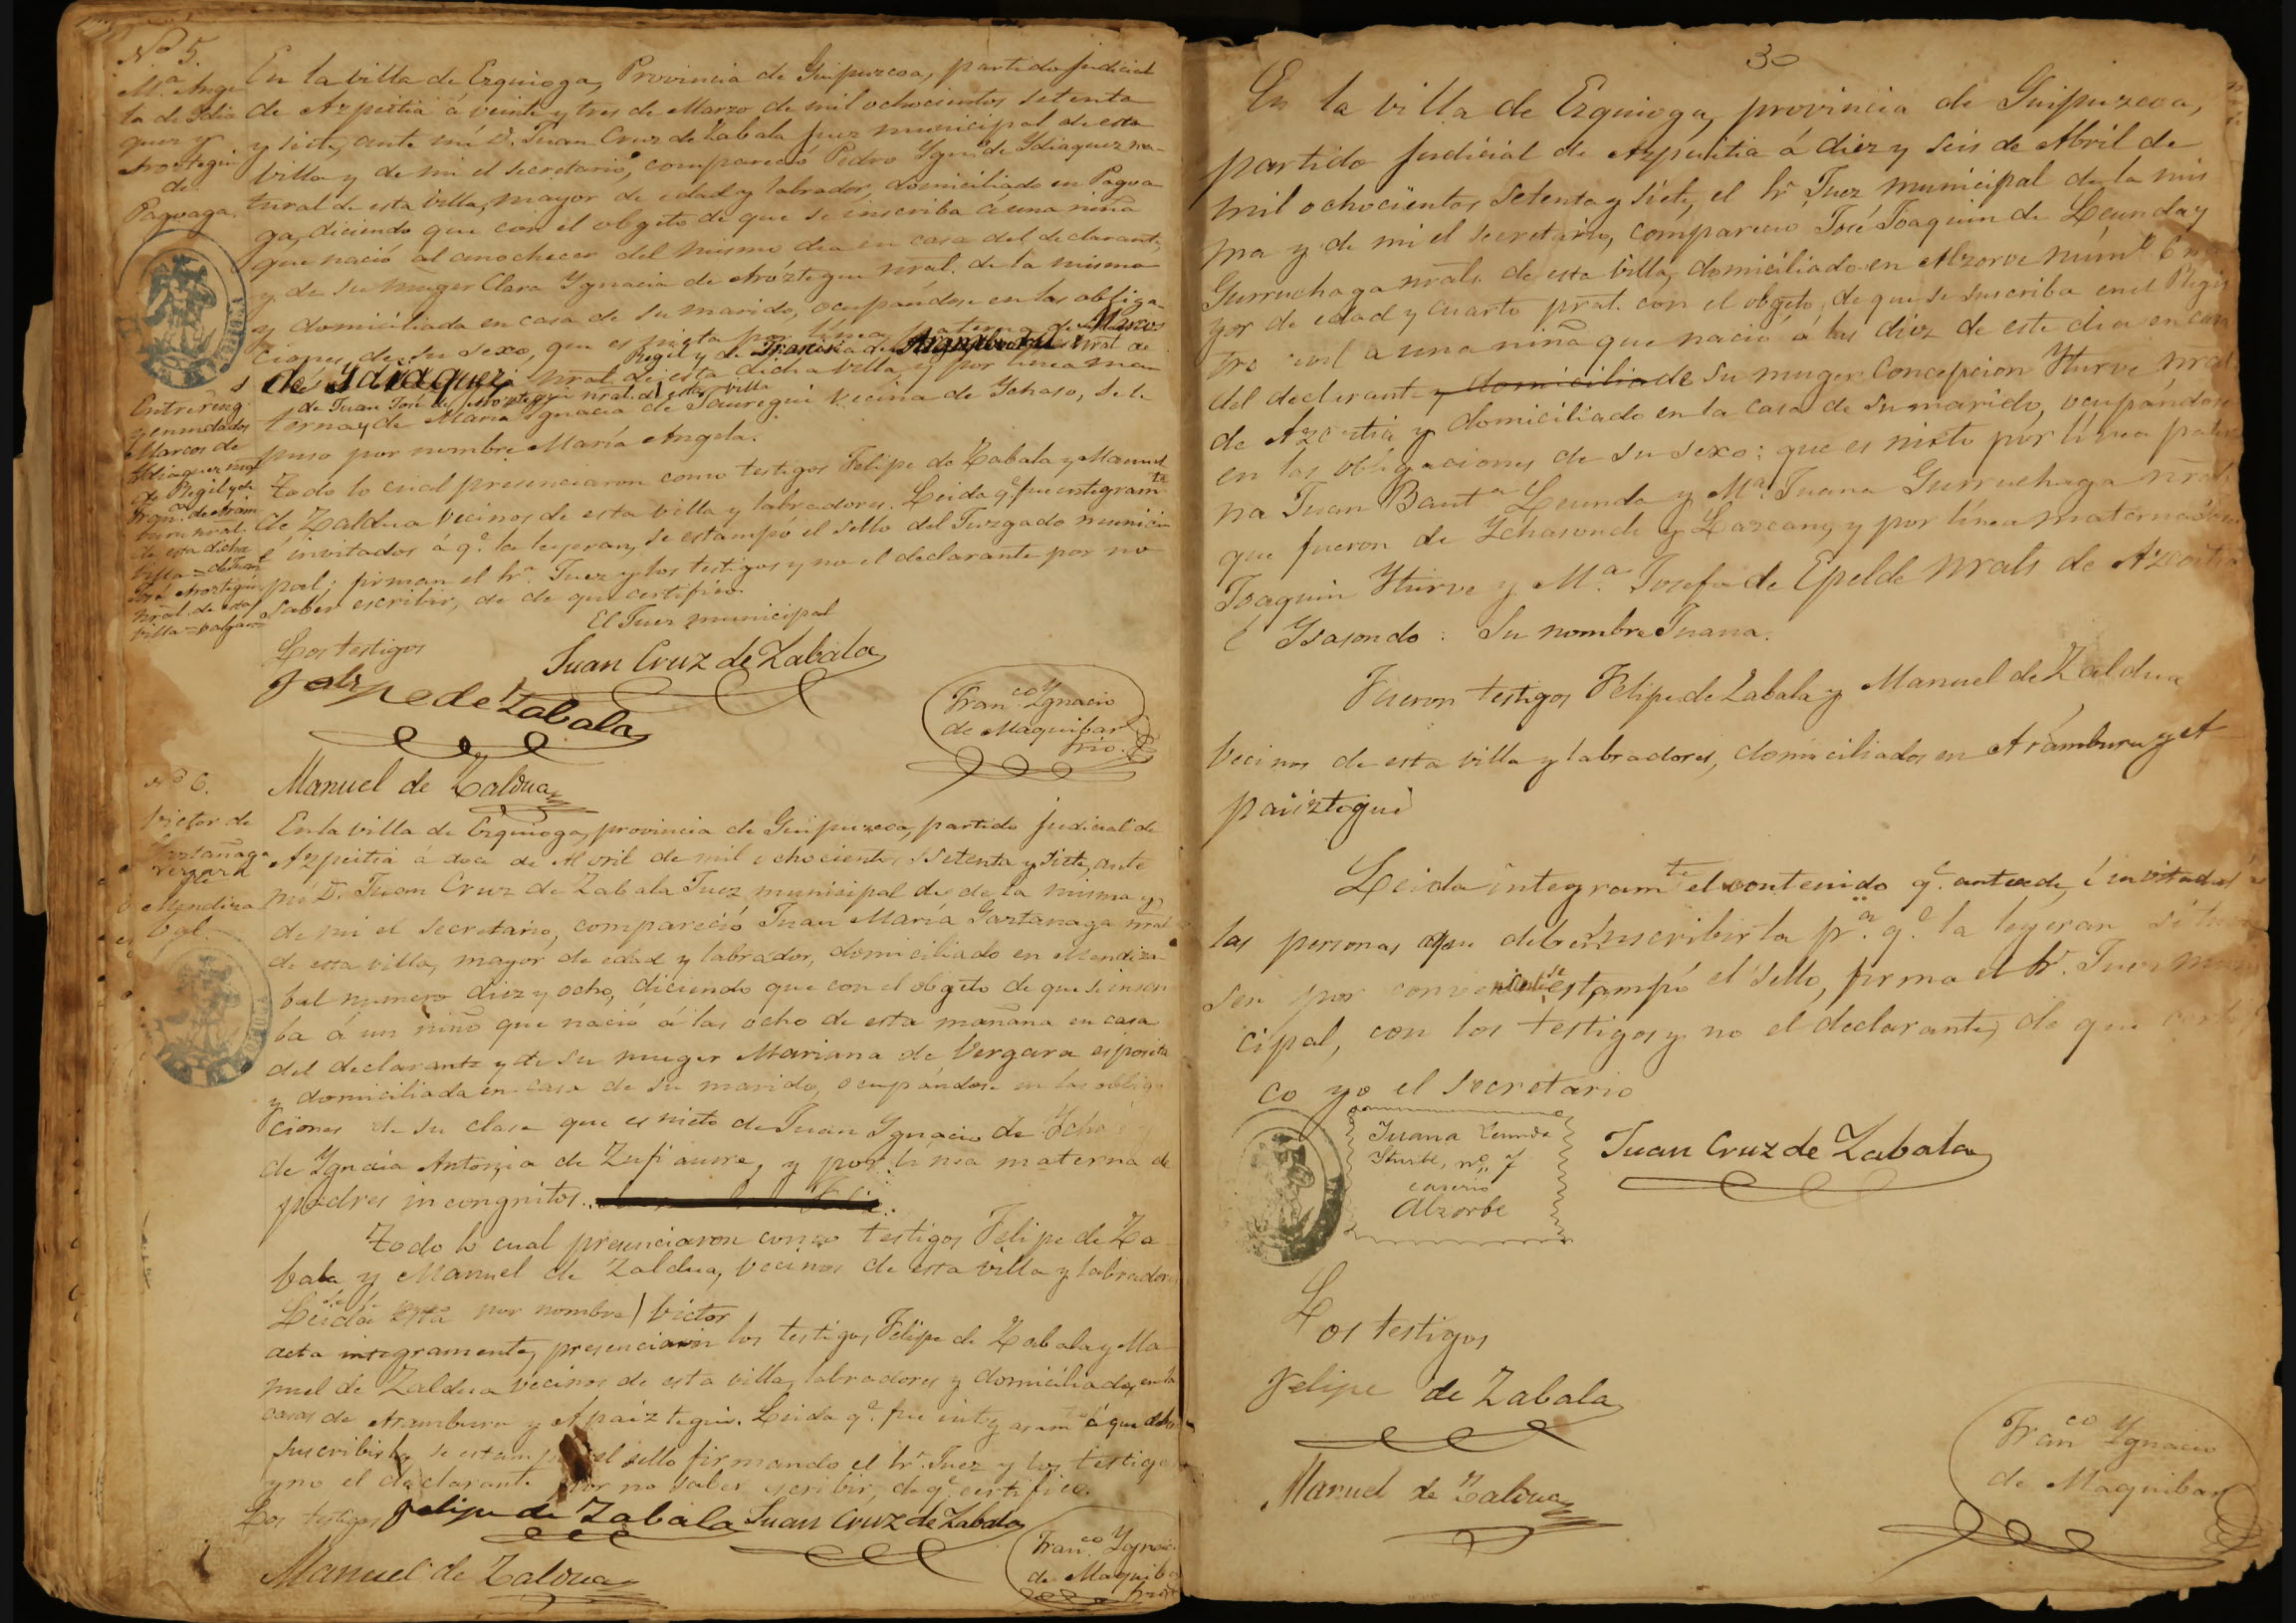 30
Nº 5.
Mª. Ange
la de Ydia
quez y
Aroztegui
de
Pagoaga.
En la villa de Ezquioga, Provincia de Guipuzcoa, partido judicial
de Azpeitia á veinte y tres de Marzo de mil ochocientos setenta
y siete, ante mí D. Juan Cruz de Zabala Juez municipal de esta
villa y de mi el secretario, compareció Pedro Ygnº. de Ydiaquez na-
tural de esta villa, mayor de edad y labrador, domiciliado en Pagoa
ga, diciendo que con el obgeto de que se inscriba á una niña
que nació al anochecer del mismo dia en casa del declarante,
y de su muger Clara Ygnacia de Aróztegui nral. de la misma
y domiciliada en casa de su marido, ocupándose en las obliga-
ciones de su sexo, que es nieta por línea paterna de Marcos
Regil y de Francisca de Aramburu nral de
de Ydiaquez nral de esta dicha villa y por linea ma
de Juan José de Aroztegui nral. de esta villa
terna y de María Ygnacia de Jauregui vecina de Ychaso, se le
puso por nombre María Angela.
Entrereng
y enmdados
Marcos de
Ydiaquez nral
de Regil y de
Franca. de Aram
buru nral.
de esta dicha
villa = de Juan
José Aroztegui
nral. de esta
villa = valgan =
Todo lo cual presenciaron como testigos Felipe de Zabala y Manuel
de Zaldua vecinos de esta villa y labradores. Leida qe. fue integramte
é invitados á qe. la leyeran, se estampó el sello del Juzgado munici
pal; firman el Sr. Juez y los testigos y no el declarante por no
saber escribir, de de que certifico.
El Juez municipal
Los testigos
Juan Cruz de Zabala
Felipe de Zabala
Franco. Ygnacio
de Maquibar
Srio.
Manuel de Zaldua
Nº 6.
Victor de
Gaztañaga
Vergara
de
Mendiza
bal.
En la villa de Ezquioga, provincia de Guipuzcoa, partido judicial de
Azpeitia á doce de Abril de mil ochocientos setenta y siete, ante
mí D. Juan Cruz de Zabala Juez municipal de de la misma y
de mi el secretario, compareció Juan María Gaztanaga nral
de esta villa, mayor de edad y labrador, domiciliado en Mendiza-
bal numero diez y ocho, diciendo que con el obgeto de que se inscri
ba á un niño que nació á las ocho de esta mañana en casa
del declarante y de su muger Mariana de Vergara esposita
y domiciliada en casa de su marido, ocupándose en las obliga
ciones de su clase que es nieto de Juan Ygnacio de
de Ygnacia Antonia de Zufiaurre, y por linea materna de
padres incongnitos.
Todo lo cual presenciaron como testigos Felipe de Za
bala y Manuel de Zaldua, vecinos de esta villa y labradores
por nombre Victor
Leida esta
acta integramente, presenciaron los testigos Felipe de Zabala y Ma
nuel de Zaldua vecinos de esta villa, labradores y domiciliados en la
casas de Aramburu y Apaiztegui. Leida qe. fue á que deben
suscribirla, se estampó el sello firmando el Sr. Juez y los testigos
y no el declarante por no saber escribir, de qe. certifico.
Los testigos Felipe de Zabala Juan Cruz de Zabala
Manuel de Zaldua
Franco. Ygnacio
de Maquibar
Srio
En la villa de Ezquioga, provincia de Guipuzcoa,
partido judicial de Azpeitia á diez y seis de Abril de
mil ochocientos setenta y siete, el Sr. Juez municipal de la mis
ma y de mi el secretario, compareció José Joaquin de Leunda y
Gurruchaga nrals. de esta villa, domiciliado en Alzorve núm. 6 ma
yor de edad y cuarto pral. con el obgeto, de que se suscriba en el Regis
tro civil a una niña que nació á las diez de este dia en casa
del declarante y domiciliade su muger Concepcion Yturve nral
de Azcoitia y domiciliado en la casa de su marido, ocupándose
en las obligaciones de su sexo: que es nieta por línea pater
na Juan Bauta Leunda y Mª. Juana Gurruchaga nrals
que fueron de Ychasondo y Lazcano, y por línea materna
Joaquin Yturve y Mª. Josefa de Epelde nrals de Azcoitia
é Ysasondo: Su nombre Juana.
Fueron testigos Felipe de Zabala y Manuel de Zaldua
vecinos de esta villa y labradores, domiciliados en Aramburu y A-
paiíztegui
Leida integramte el contenido qe. antecede, é invitadas
las personas que deben suscribirla pa. qe. la leyeran si tuvie
sen por conveniente se estampó el sello, firma el Sr. Juez muni
cipal, con los testigos y no el declarante, de que certifi
co yo el secretario
Juana Leunda
Yturbe, nº 7
caserio
Alzorbe
Juan Cruz de Zabala
Los testigos
Felipe de Zabala
Manuel de Zaldua
Franco Ygnacio
de Maquibar